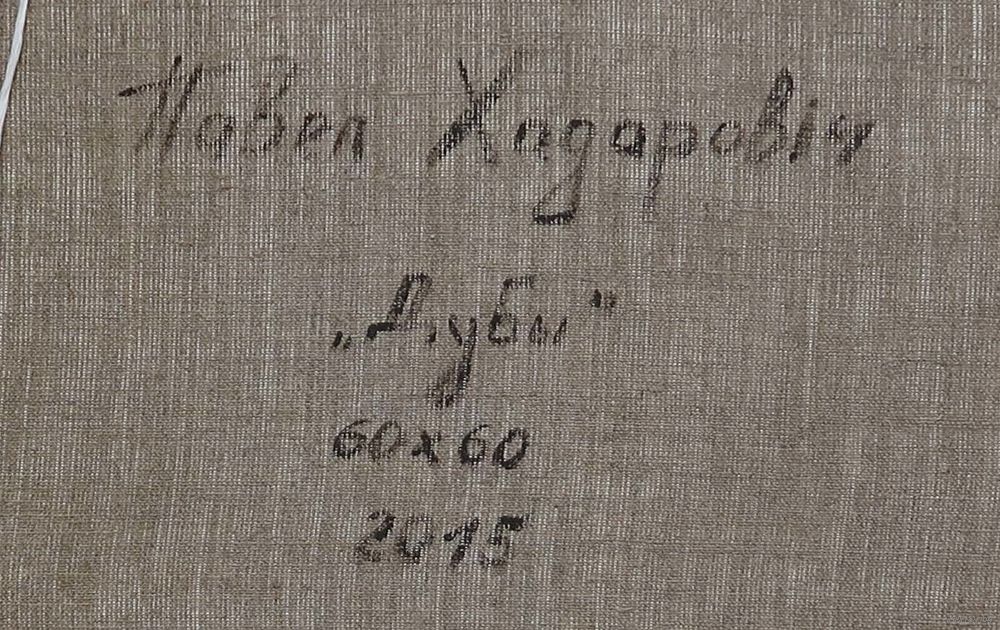 Павел Хадаровіч
„Дубы"
60x60
2015